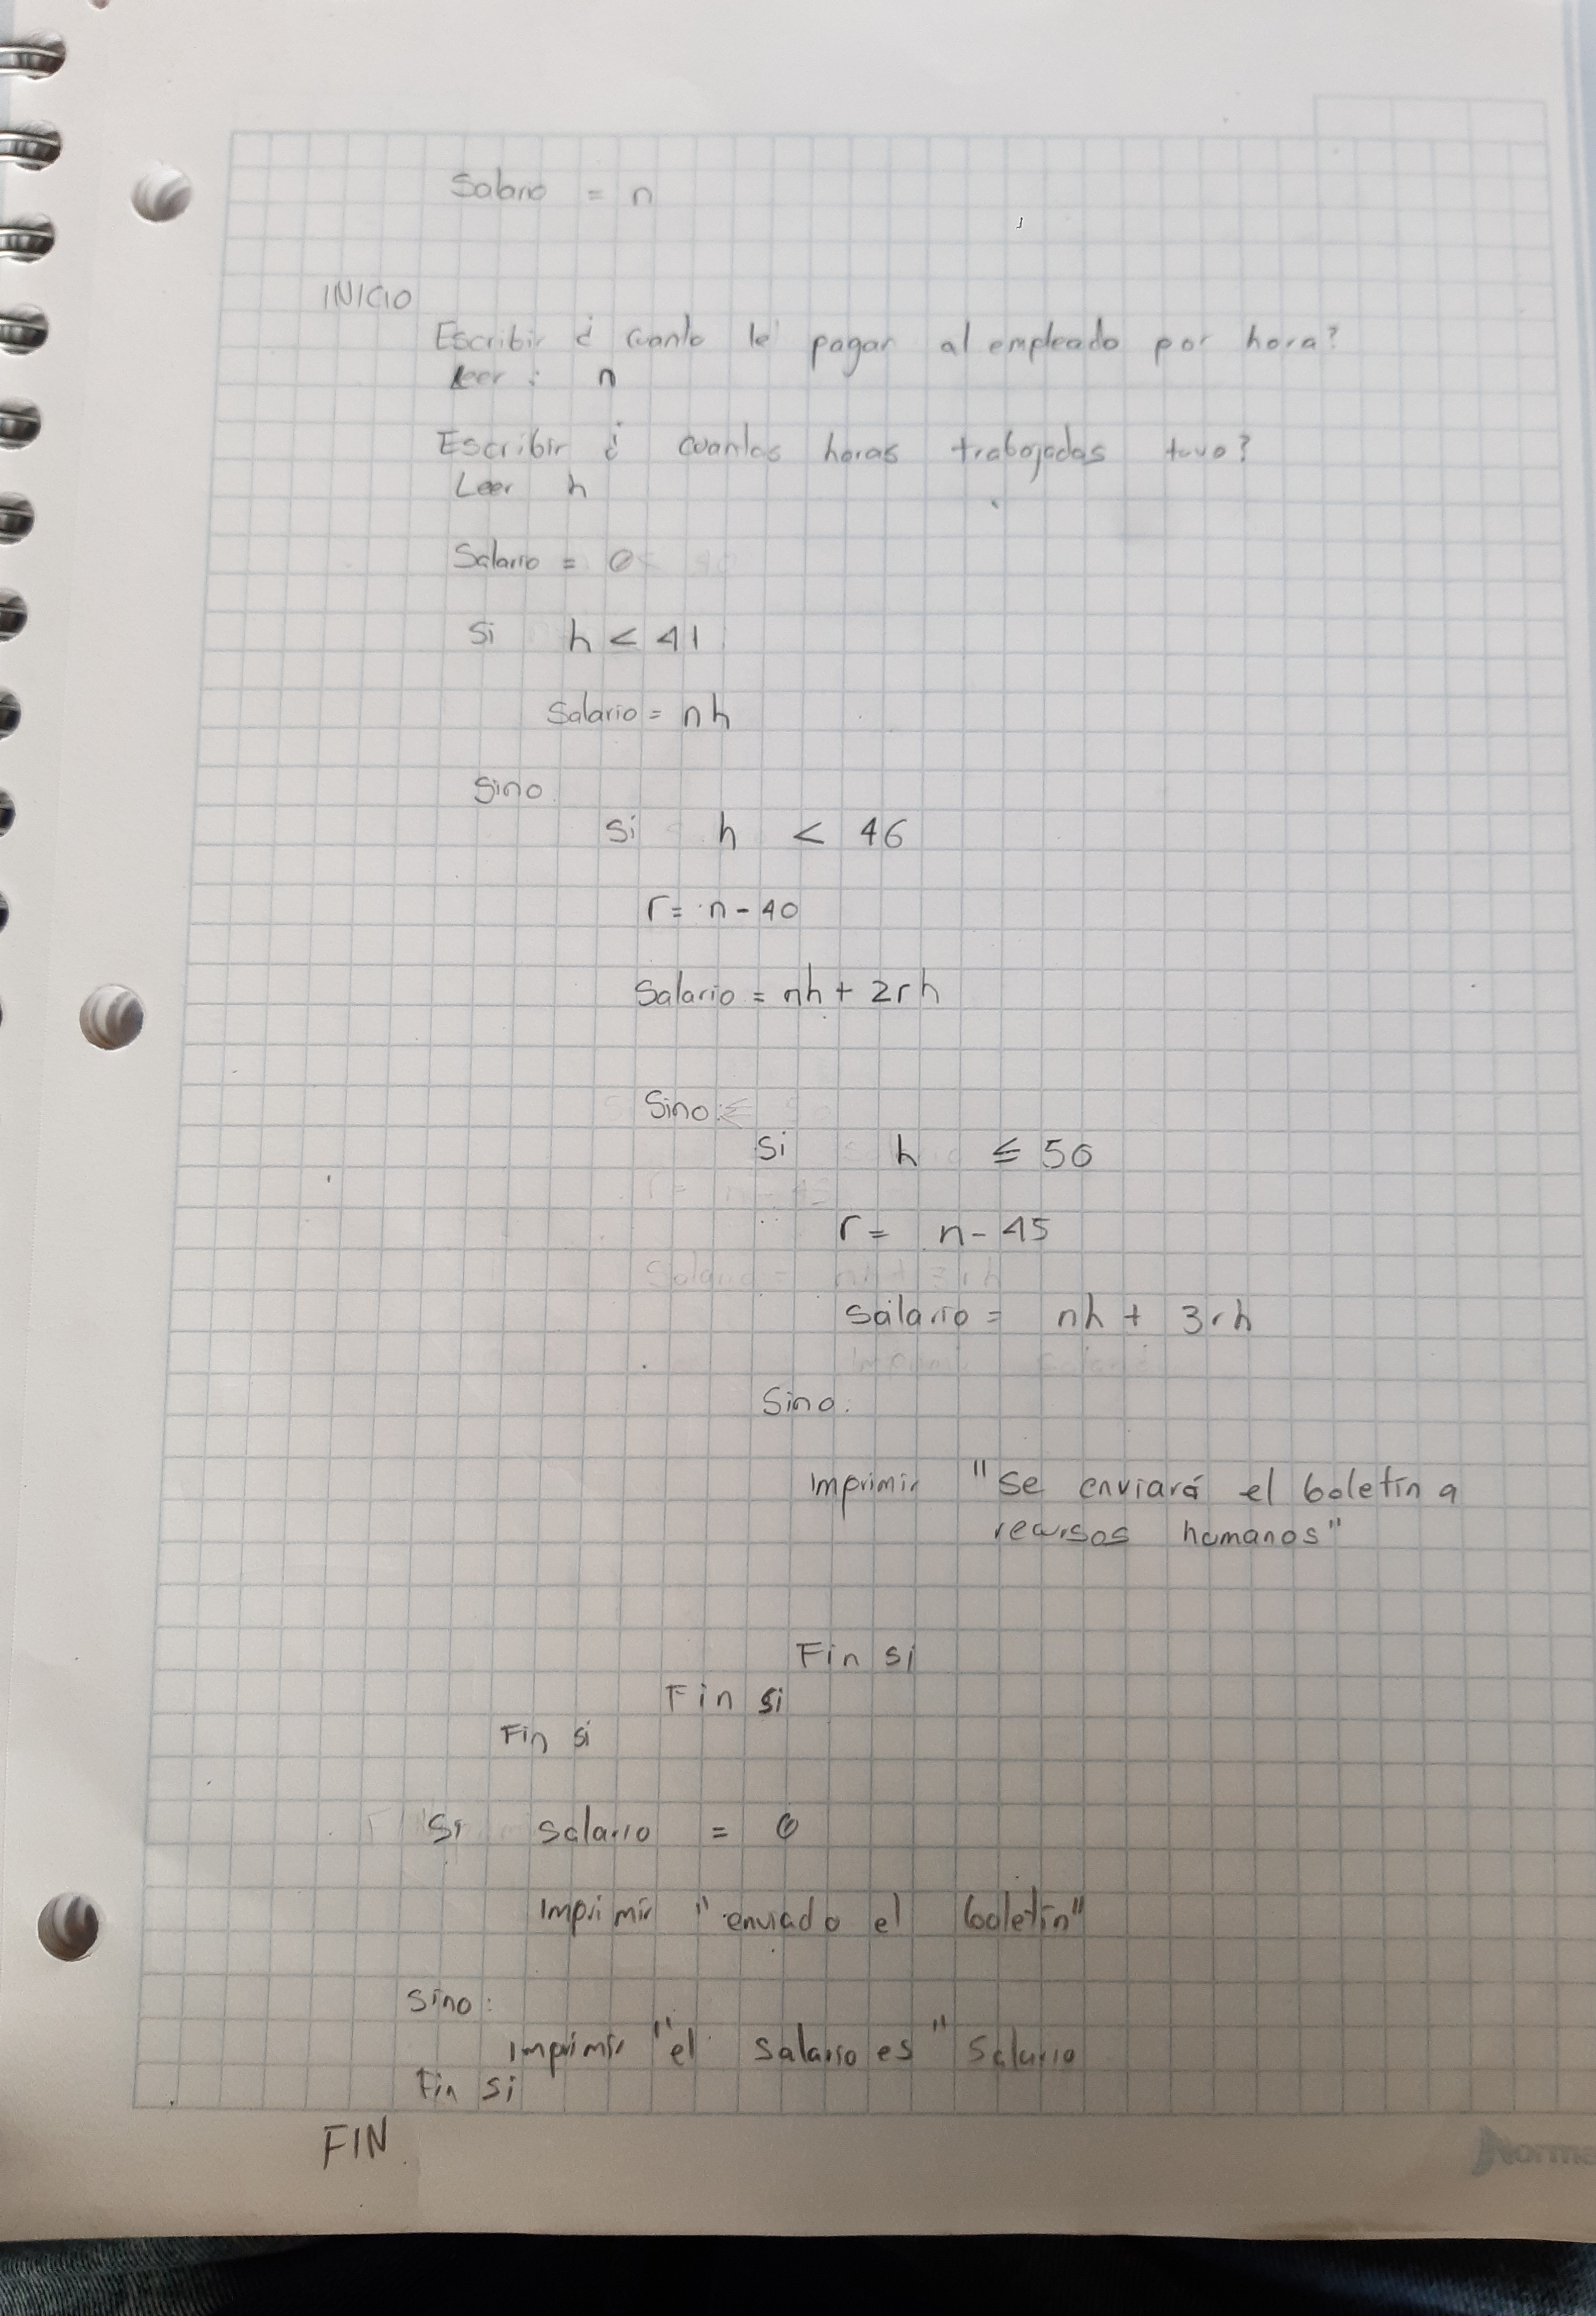 Salario = n
INICIO
Escribir ¿ cuanto le pagar al empleado por hora?
Leer : n
Escribir ¿ cuantas horas trabajadas tuvo?
Leer h
Salario = 0
Si h < 41
Salario = nh
Sino
Si h < 46
r = n - 40
Salario = nh + 2rh
Sino:
Si h ≤ 50
r = n - 45
Salario = nh + 3rh
Sino:
Imprimir "Se enviará el boletín a
recursos humanos"
Fin si
Fin si
Fin si
Si salario = 0
Imprimir "enviado el boletín"
Sino:
Imprimir "el salario es" Salario
Fin si
FIN.